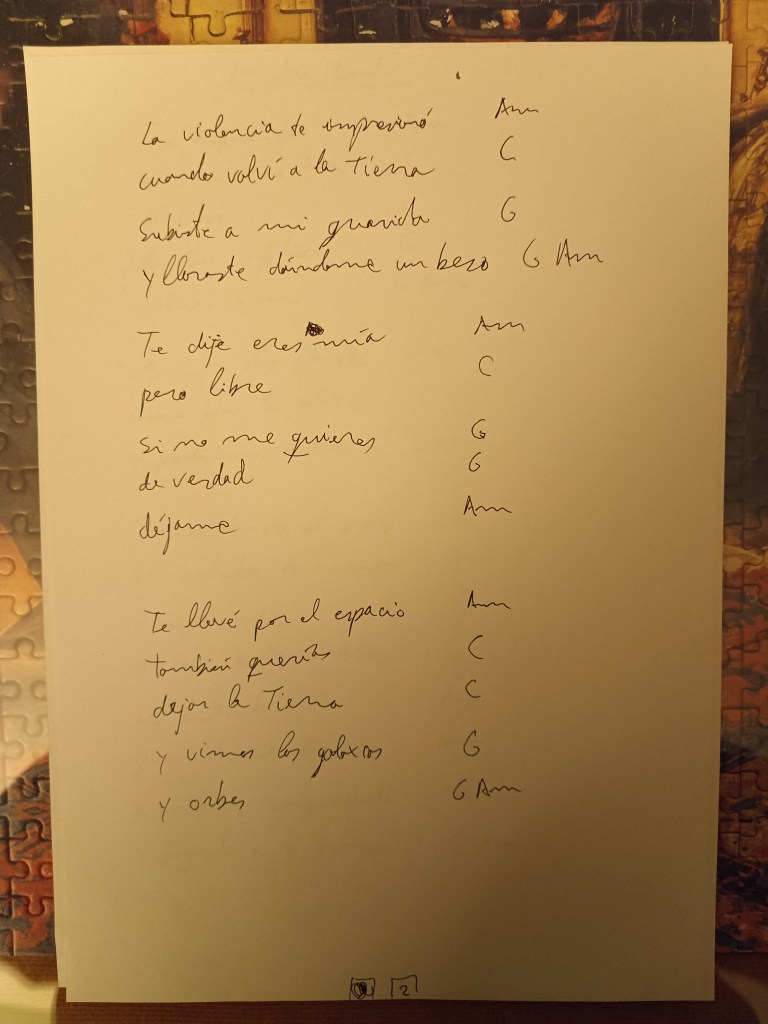 La violencia te impresionó Am
cuando volví a la Tierra C
Subiste a mi guarida G
y lloraste dándome un beso G Am
Te dije eres mía Am
pero libre C
si no me quieres G
de verdad G
déjame Am
Te llevé por el espacio Am
también querías C
dejar la Tierra C
y vimos las galaxias G
y orbes G Am
2